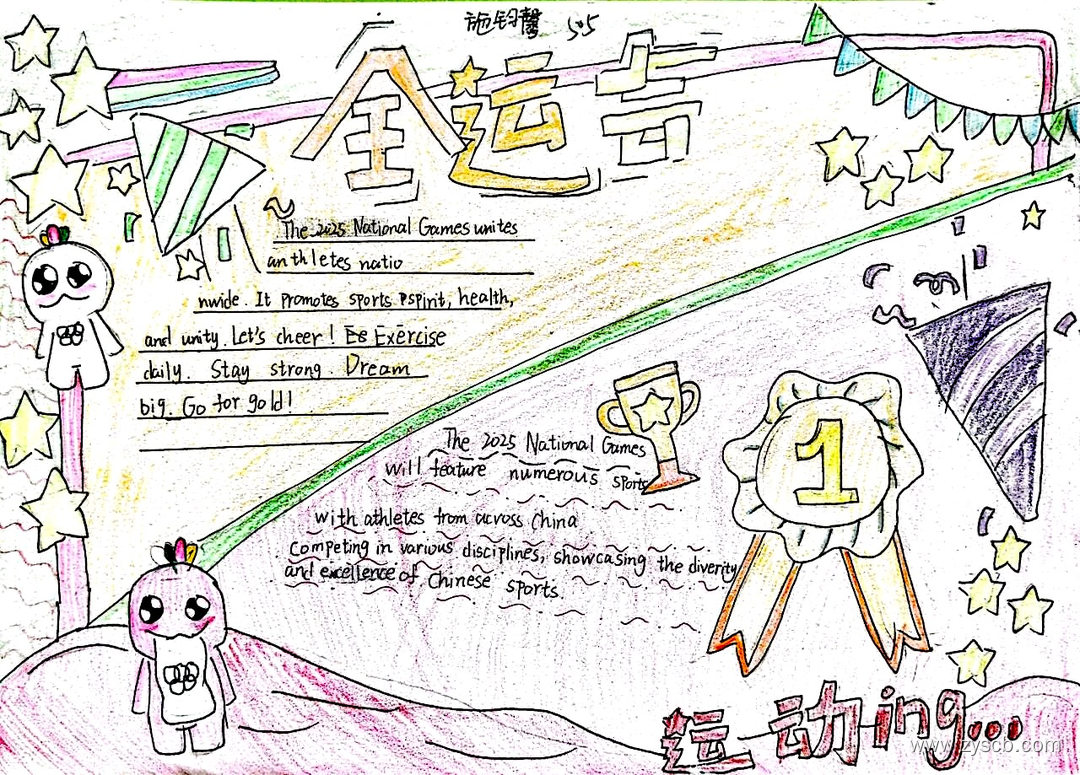 施钧馨 505
全运吉
The 2025 National Games unites
anthletes natio
nwide. It promotes sports pspirit, health,
and unity. Let's cheer! Es Exercise
daily. Stay strong. Dream
big. Go for gold!
The 2025 National Games
will feature numerous sports
with athletes from across China
Competing in various disciplines, showcasing the diverity
and excellence of Chinese sports.
1
运动ing...
www.zyscb.com